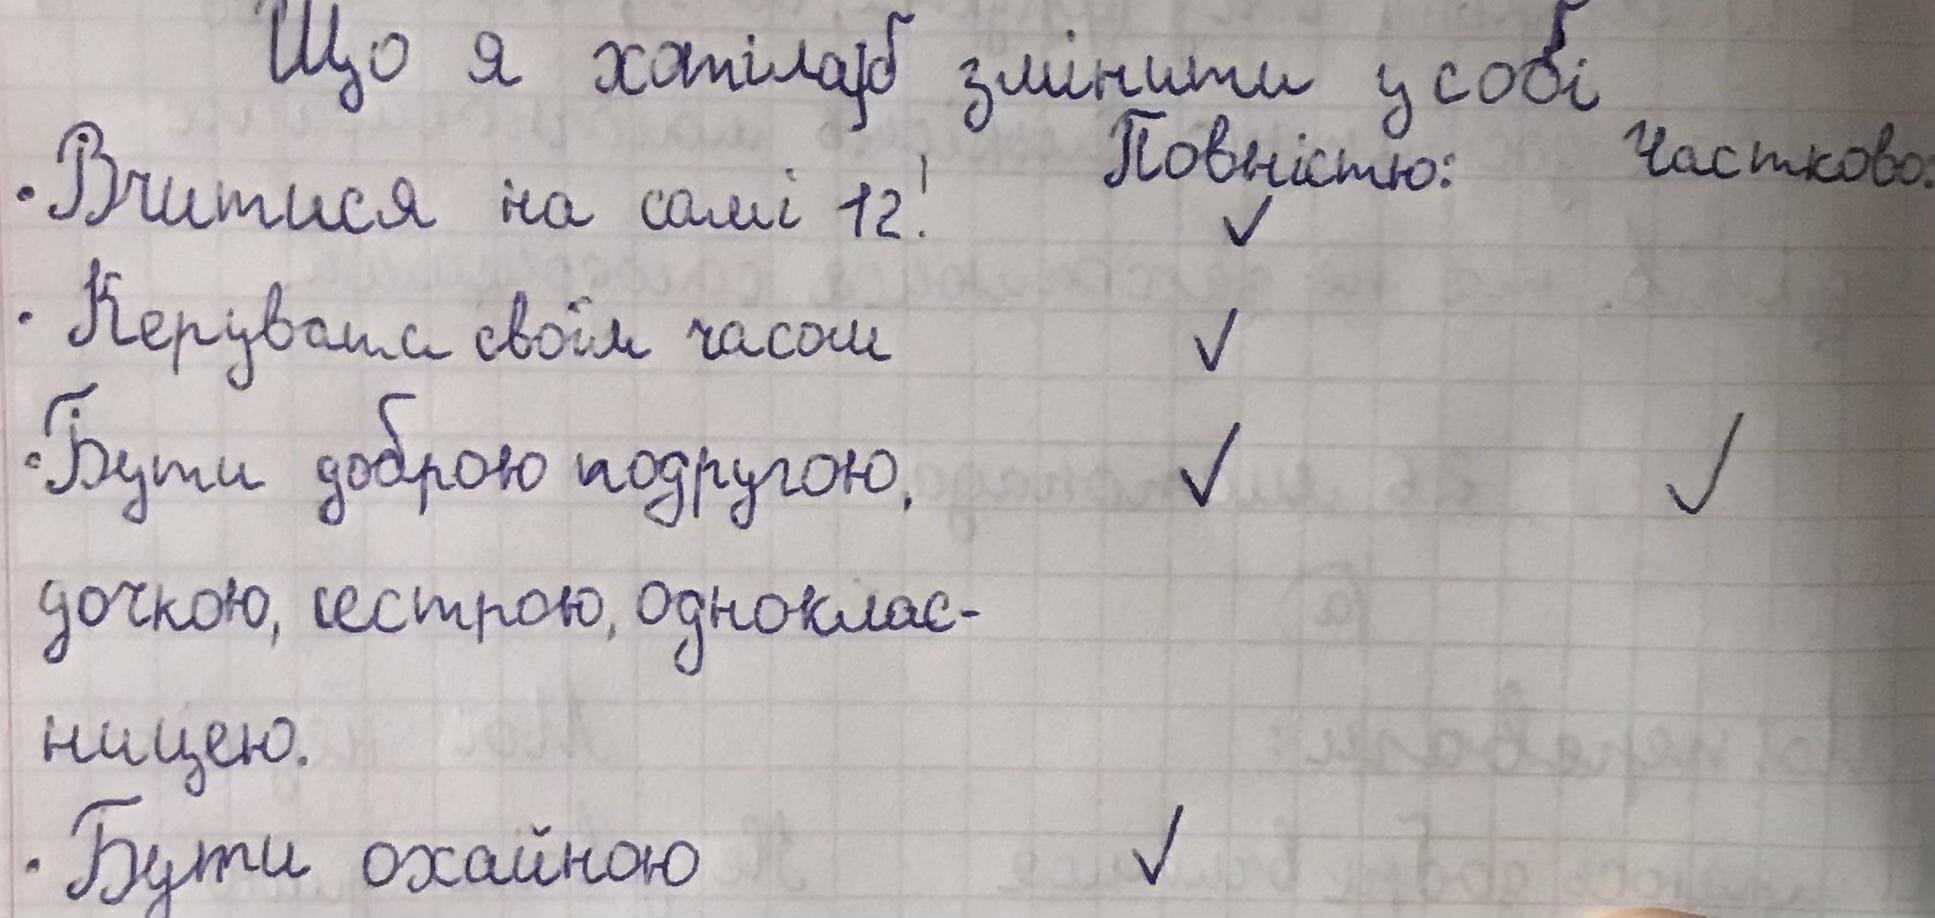 Що я хотіла б змінити у собі
Повністю: Частково:
• Вчитися на самі 12! ✓
• Керувати своїм часом ✓
• Бути доброю подругою, ✓ ✓
дочкою, сестрою, одноклас-
ницею.
• Бути охайною ✓